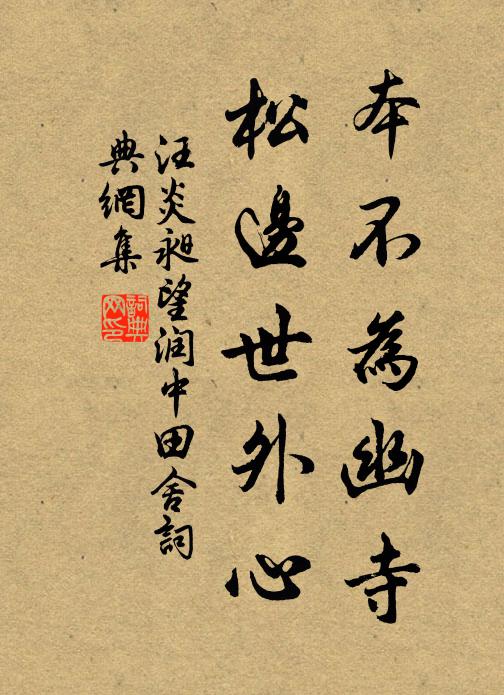 本不為幽寺
松邊世外心
汪炎昶望润中田舍詞
典網集
詞典
网印